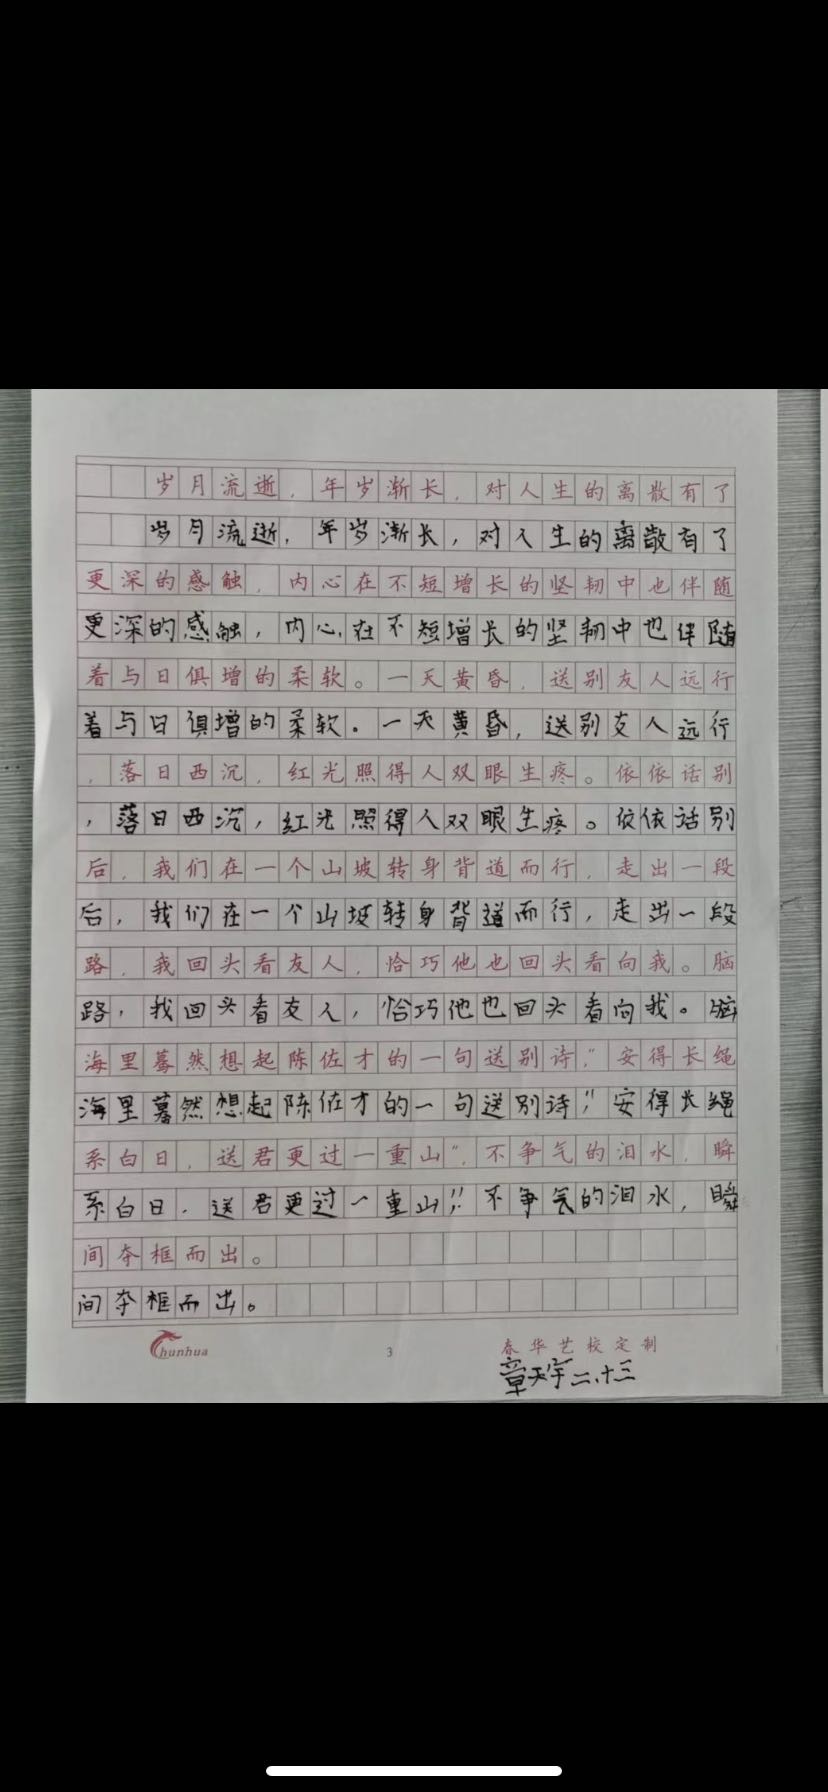 岁月流逝，年岁渐长，对人生的离散有了
岁月流逝，年岁渐长，对人生的离散有了
更深的感触，内心在不短增长的坚韧中也伴随
更深的感触，内心在不短增长的坚韧中也伴随
着与日俱增的柔软。一天黄昏，送别友人远行
着与日俱增的柔软。一天黄昏，送别友人远行
，落日西沉，红光照得人双眼生疼。依依话别
，落日西沉，红光照得人双眼生疼。依依话别
后，我们在一个山坡转身背道而行，走出一段
后，我们在一个山坡转身背道而行，走出一段
路，我回头看友人，恰巧他也回头看向我。脑
路，我回头看友人，恰巧他也回头看向我。脑
海里蓦然想起陈佐才的一句送别诗，“安得长绳
海里蓦然想起陈佐才的一句送别诗，“安得长绳
系白日，送君更过一重山”，不争气的泪水，瞬
系白日，送君更过一重山”，不争气的泪水，瞬
间夺框而出。
间夺框而出。
Chunhua 3 春华艺校定制
章天宇二.十三